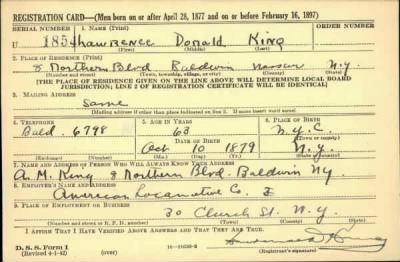 REGISTRATION CARD—(Men born on or after April 28, 1877 and on or before February 16, 1897)
SERIAL NUMBER 1. NAME (Print) ORDER NUMBER
U 1854 Lawrence Donald King
(First) (Middle) (Last)
2. PLACE OF RESIDENCE (Print)
8 Northern Blvd Baldwin Nassau N.Y.
(Number and street) (Town, township, village, or city) (County) (State)
[THE PLACE OF RESIDENCE GIVEN ON THE LINE ABOVE WILL DETERMINE LOCAL BOARD
JURISDICTION; LINE 2 OF REGISTRATION CERTIFICATE WILL BE IDENTICAL]
3. MAILING ADDRESS
Same
(Mailing address if other than place indicated on line 2. If same insert word same)
4. TELEPHONE 5. AGE IN YEARS 6. PLACE OF BIRTH
Bald. 6798 63 N.Y.C.
DATE OF BIRTH (Town or county)
Oct 10 1879 N.Y.
(Exchange) (Number) (Mo.) (Day) (Yr.) (State or country)
7. NAME AND ADDRESS OF PERSON WHO WILL ALWAYS KNOW YOUR ADDRESS
A. M. King 8 Northern Blvd. Baldwin NY
8. EMPLOYER'S NAME AND ADDRESS
American Locomotive Co.
9. PLACE OF EMPLOYMENT OR BUSINESS
30 Church St. N.Y.
(Number and street or R. F. D. number) (Town) (County) (State)
I AFFIRM THAT I HAVE VERIFIED ABOVE ANSWERS AND THAT THEY ARE TRUE.
D. S. S. Form 1
(Revised 4-1-42) (over)